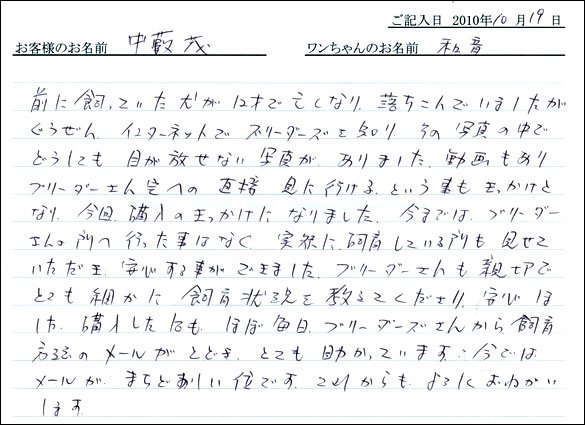 ご記入日 2010年10月19日
お客様のお名前 中薮 茂 ワンちゃんのお名前 和音
前に飼っていた犬が12才で亡くなり、落ちこんでいましたが
ぐうぜん、インターネットでブリーダーズを知り、その写真の中で
どうしても目が放せない写真が、ありました、動画もあり
ブリーダーさん宅への直接見に行ける、という事もきっかけと
なり、今回、購入のきっかけになりました、今までは、ブリーダー
さんの所へ行った事はなく、実際に飼育している所も見せて
いただき、安心する事ができました、ブリーダーさんも親切で
とても細かに飼育状況を教えてくださり、安心しま
した、購入した后も、ほぼ毎日、ブリーダーズさんから飼育
方法のメールがとどき、とても助かっています、今では
メールが、まちどおしい位です、これからも、よろしくおねがい
します